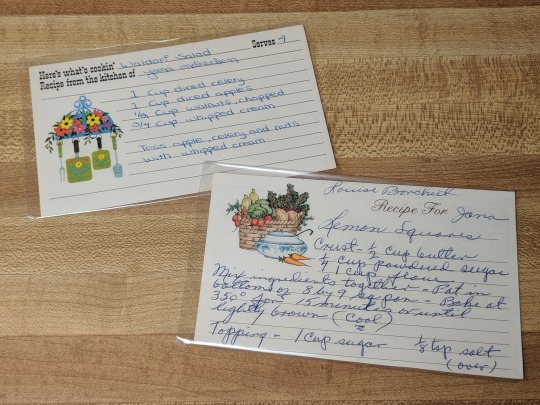 Here's what's cookin' Waldorf Salad Serves 4
Recipe from the kitchen of
1 Cup diced celery
1 Cup diced apples
1/2 Cup walnuts, chopped
3/4 Cup whipped cream
Toss apple, celery and nuts
with whipped cream
Louise Borchert
Recipe For Jana
Lemon Squares
Crust - 1/2 cup butter
1/4 cup powdered sugar
1 cup flour
Mix ingredients together - Pat in
bottom of 8 by 9 pan - Bake at
350° for 15 minutes or until
lightly brown (Cool)
Topping - 1 Cup sugar 1/8 tsp salt
(over)